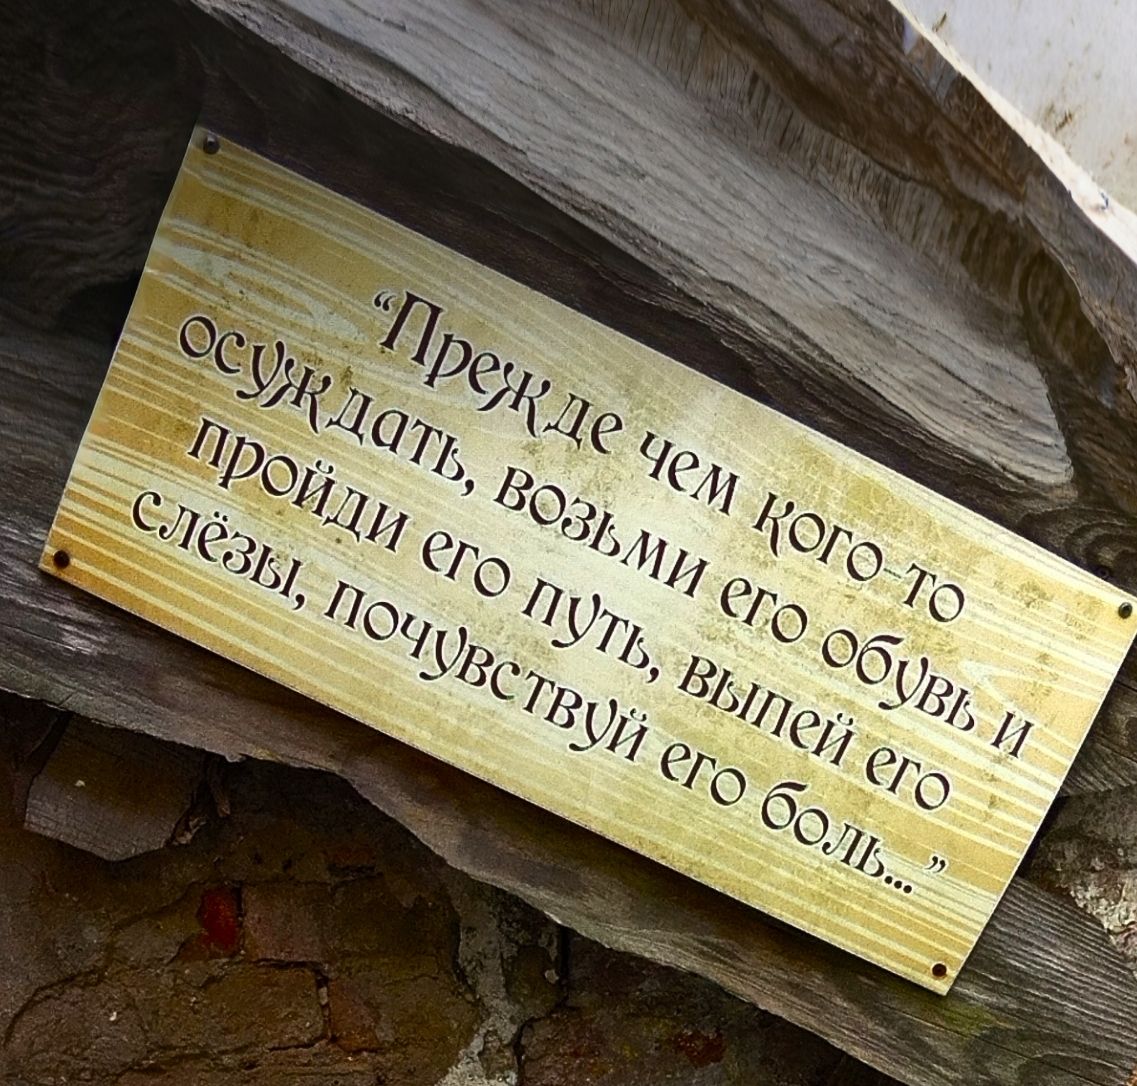 “Прежде чем кого-то
осуждать, возьми его обувь и
пройди его путь, выпей его
слёзы, почувствуй его боль...”